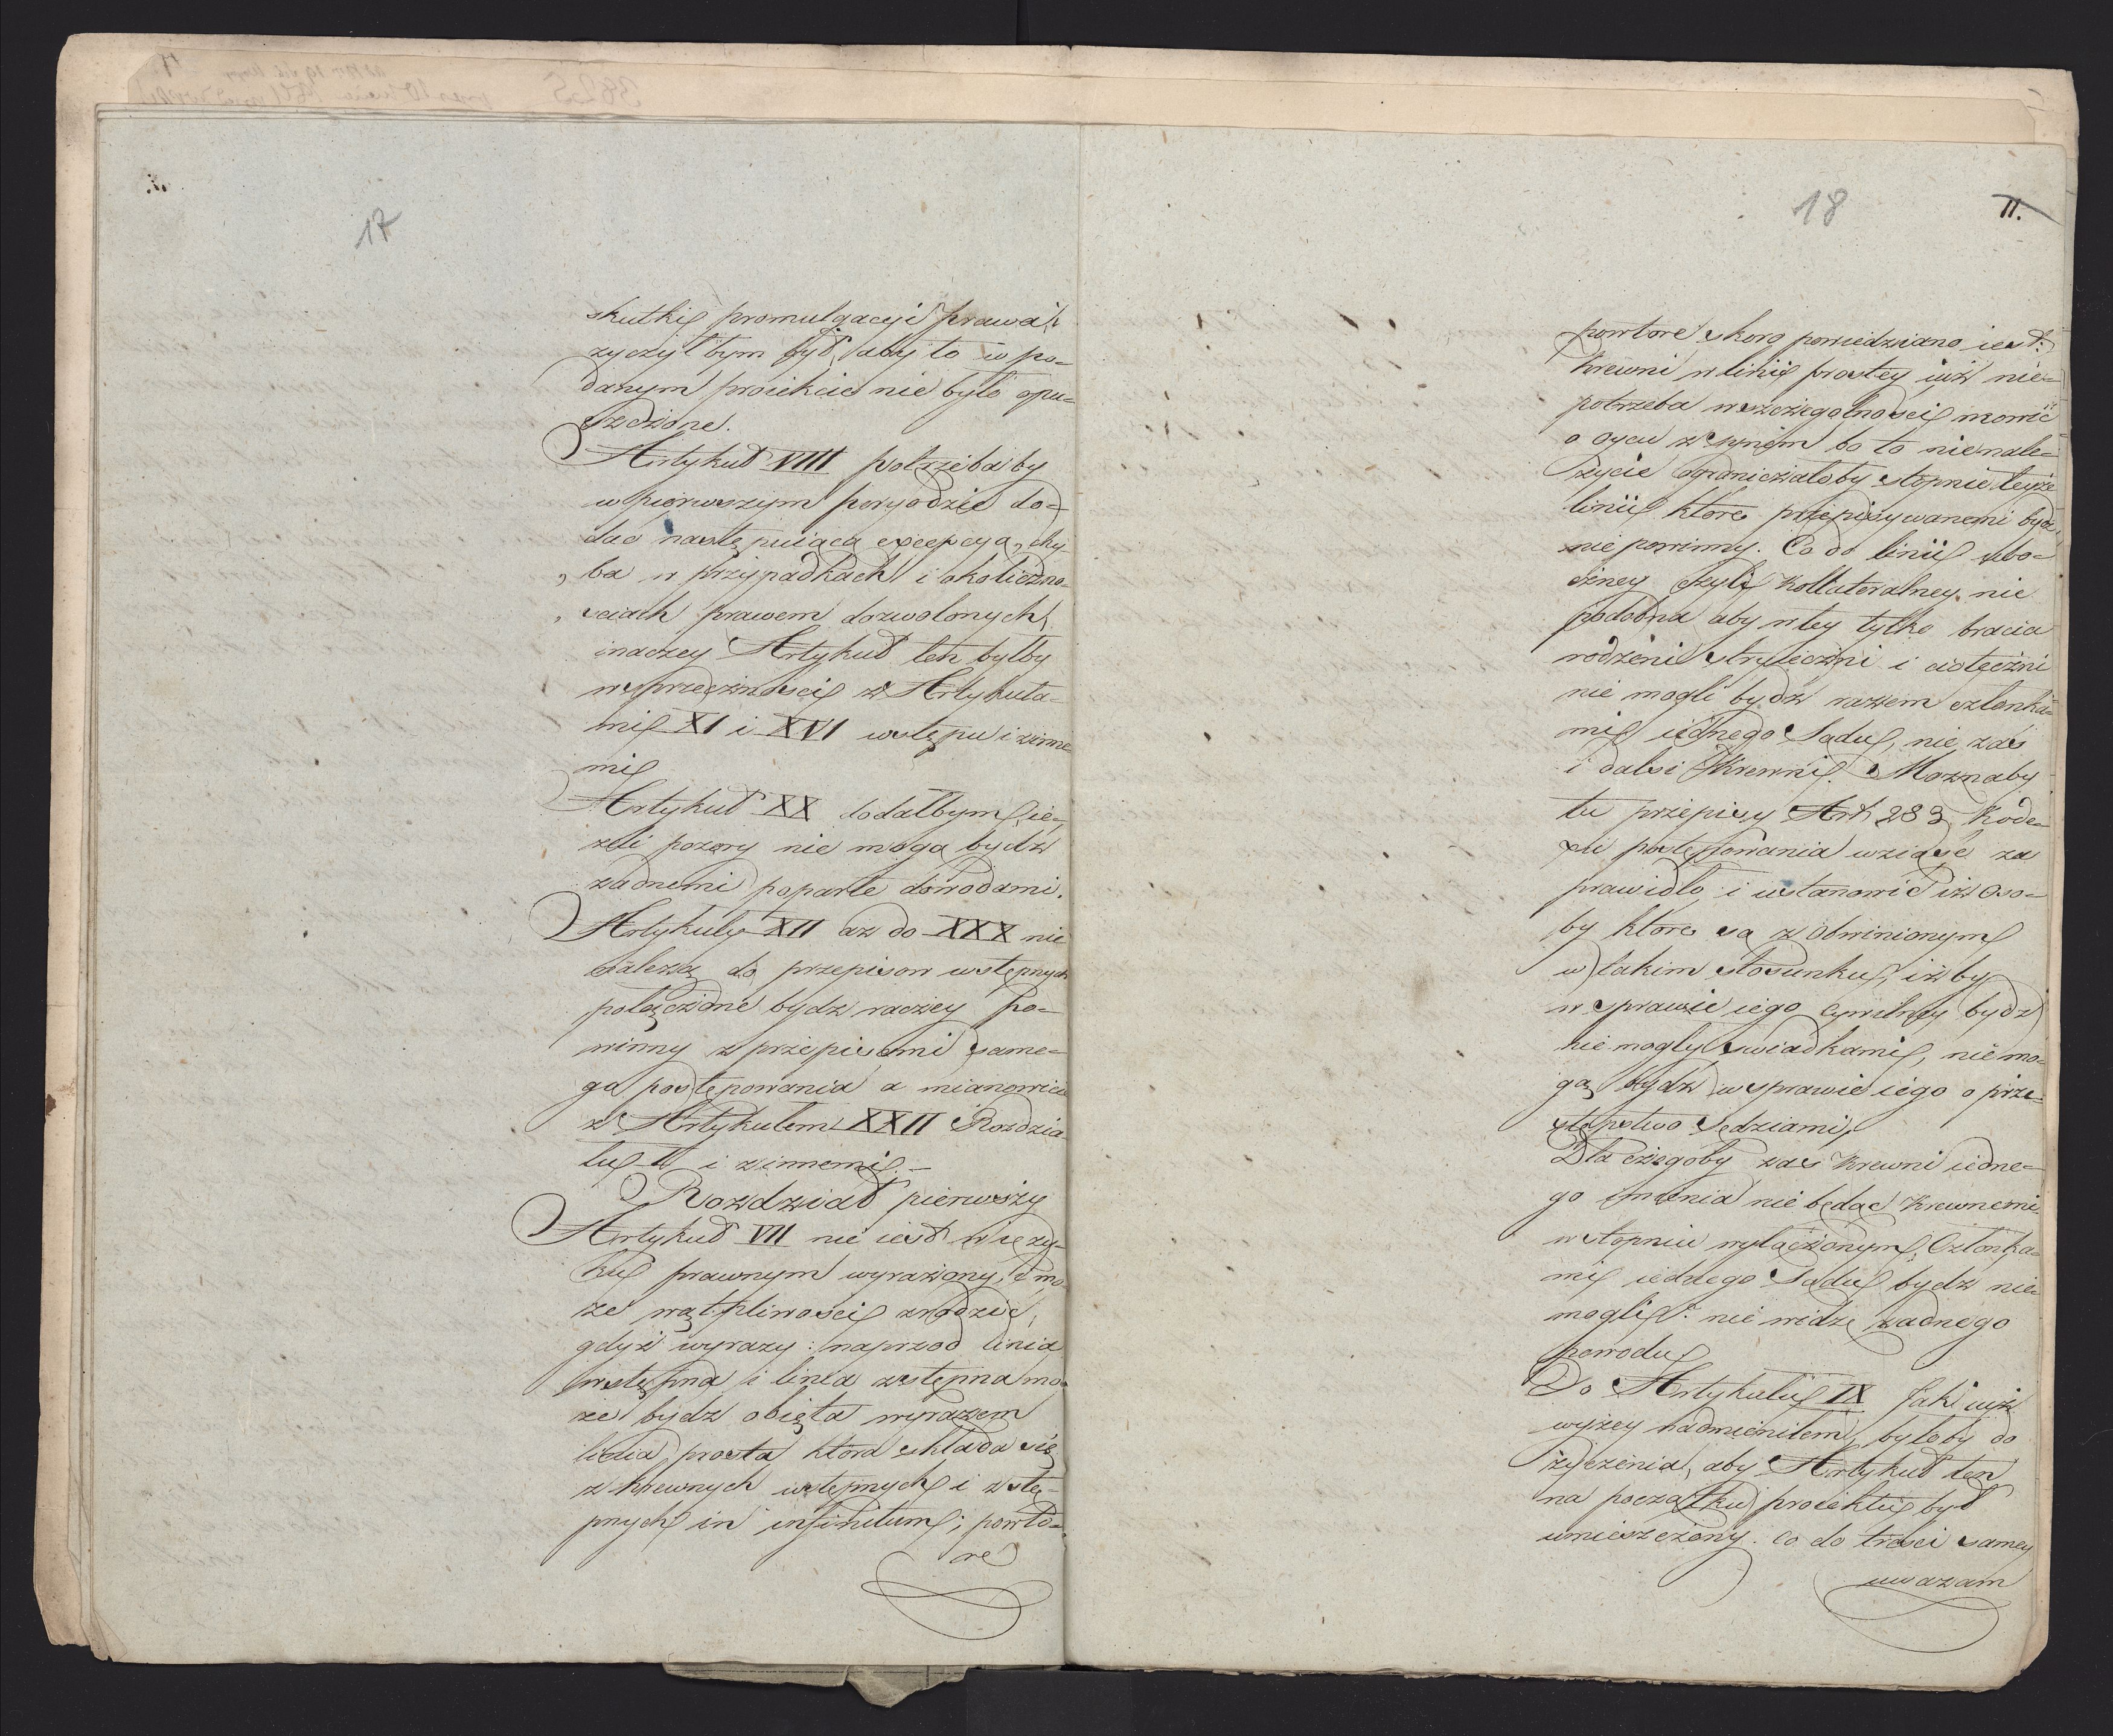 17
skutki promulgacyi prawa;
zyczyłbym był, aby to w po-
danym proiekcie nie było opu-
szczone.
Artykuł VIII potrzebaby
w pierwszym peryodzie do-
dać następuiącą excepcyą, chy-
„ ba w przypadkach i okoliczno-
„ sciach prawem dozwolonych,
inaczey Artykuł ten byłby
w sprzeczności z Artykuła-
mi XI i XVI wstępu i inne-
mi
Artykuł XX dodałbym, ie-
zeli pozory nie mogą bydz
zadnemi poparte dowodami.
Artykuły XII az do XXX nie
należą do przepisow wstępnych
połączone bydz raczey po-
winny z przepisami same-
go postępowania a mianowicie
z Artykułem XXII Rozdzia-
łu II i z innemi. —
Rozdział pierwszy
Artykuł VII nie iest w ięzy-
ku prawnym wyrażony, i mo-
ze wątpliwości zrodzić,
gdyż wyrazy: naprzod linia
wstępna i linia zstępna mo-
ze bydz obięta wyrazem
linia prosta ktora składa się
z krewnych wstępnych i zstę-
pnych in infinitum; powto-
re
18
II.
powtore skoro powiedziano iest:
Krewni w linii prostey iuż nie-
potrzeba w szczegolności mowić
o oycu z synem bo to nienale-
życie ograniczałoby stopnie teyże
linii ktore przepisywanemi bydz
nie powinny. Co do linii ubo-
czney czyli kollateralney, nie
podobna aby w tey tylko bracia
rodzeni stryieczni i cioteczni
nie mogli bydz razem członka-
mi iednego Sądu, nie zas
i dalsi Krewni. Moznaby
tu przepisy Art. 283 Kode-
xu postępowania wziąść za
prawidło, i ustanowić iż oso-
by ktore są z obwinionym
w takim stosunku, iż by
w sprawie iego cywilney bydz
nie mogły swiadkami, nie mo-
gą bydz w sprawie iego o prze-
stępstwo sędziami,
Dla czegoby zas Krewni iedne-
go imienia nie będąc Krewnemi
w stopniu wyłączonym, Członka-
mi iednego Sądu bydz nie-
mogli? nie widzę zadnego
powodu
Do Artykułu IX Jak iuż
wyżey nadmieniłem, byłoby do
życzenia, aby Artykuł ten
na początku proiektu był
umieszczony. Co do tresci samey
uwazam